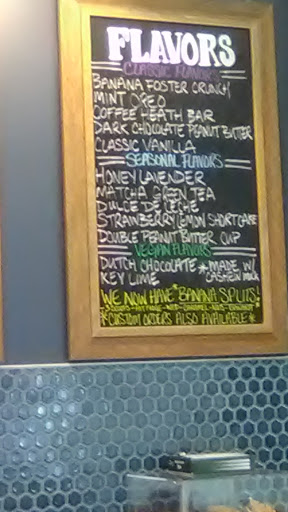 FLAVORS
CLASSIC FLAVORS
BANANA FOSTER CRUNCH
MINT OREO
COFFEE HEATH BAR
DARK CHOCOLATE PEANUT BUTTER
CLASSIC VANILLA
SEASONAL FLAVORS
HONEY LAVENDER
MATCHA GREEN TEA
DULCE DE LECHE
STRAWBERRY/LEMON SHORTCAKE
DOUBLE PEANUT BUTTER CUP
VEGAN FLAVORS
DUTCH CHOCOLATE *MADE W/
KEY LIME CASHEW MILK
WE NOW HAVE *BANANA SPLITS!*
*CUSTOM ORDERS ALSO AVAILABLE*